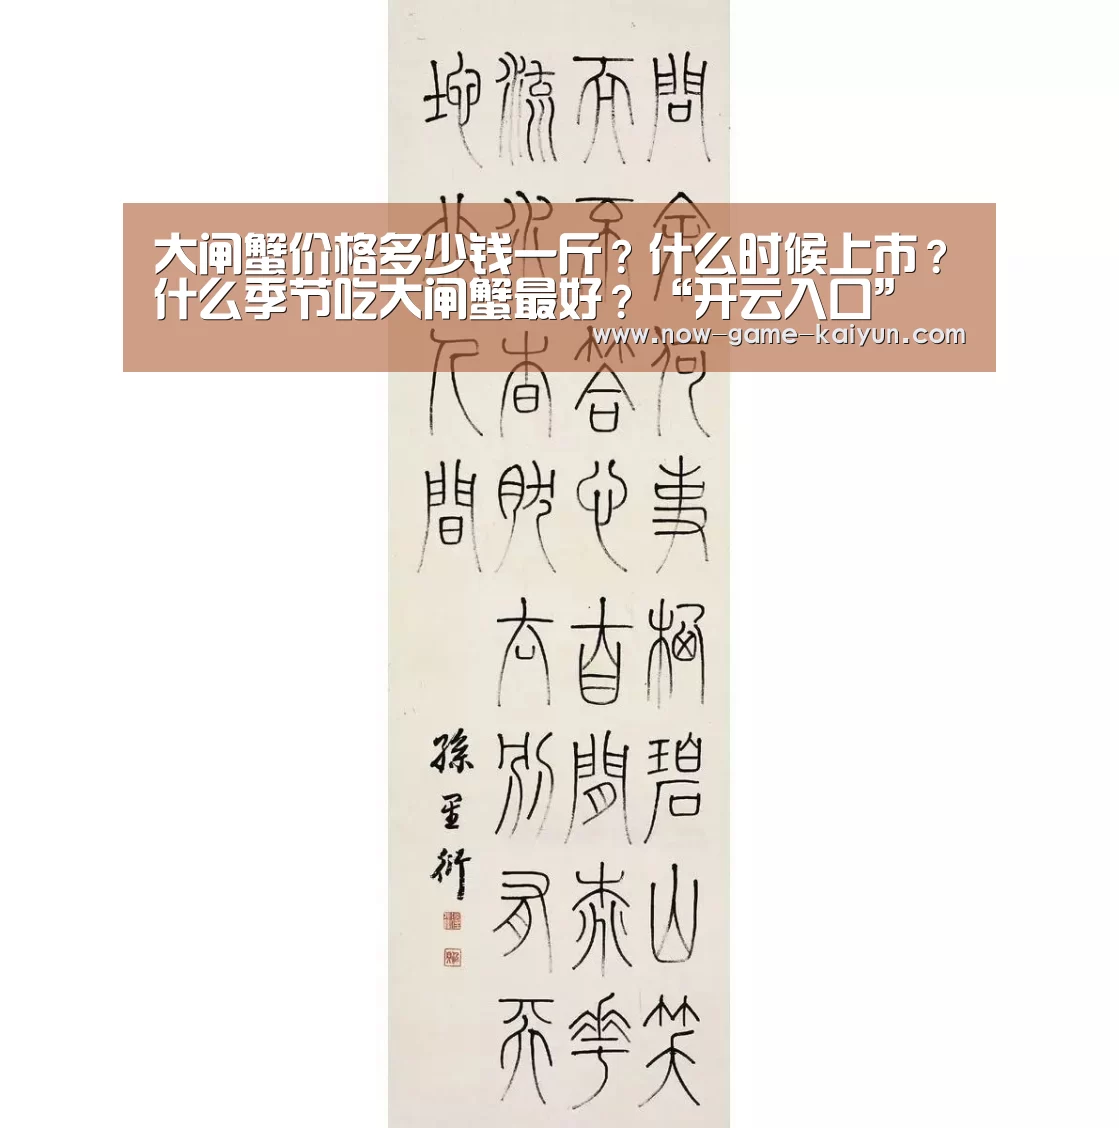 大闸蟹价格多少钱一斤？什么时候上市？
什么季节吃大闸蟹最好？“开云入口”
www.now-game-kaiyun.com
問余何事栖碧山笑
而不答心自閒桃花
流水杳然去別有天
地非人間
孫星衍